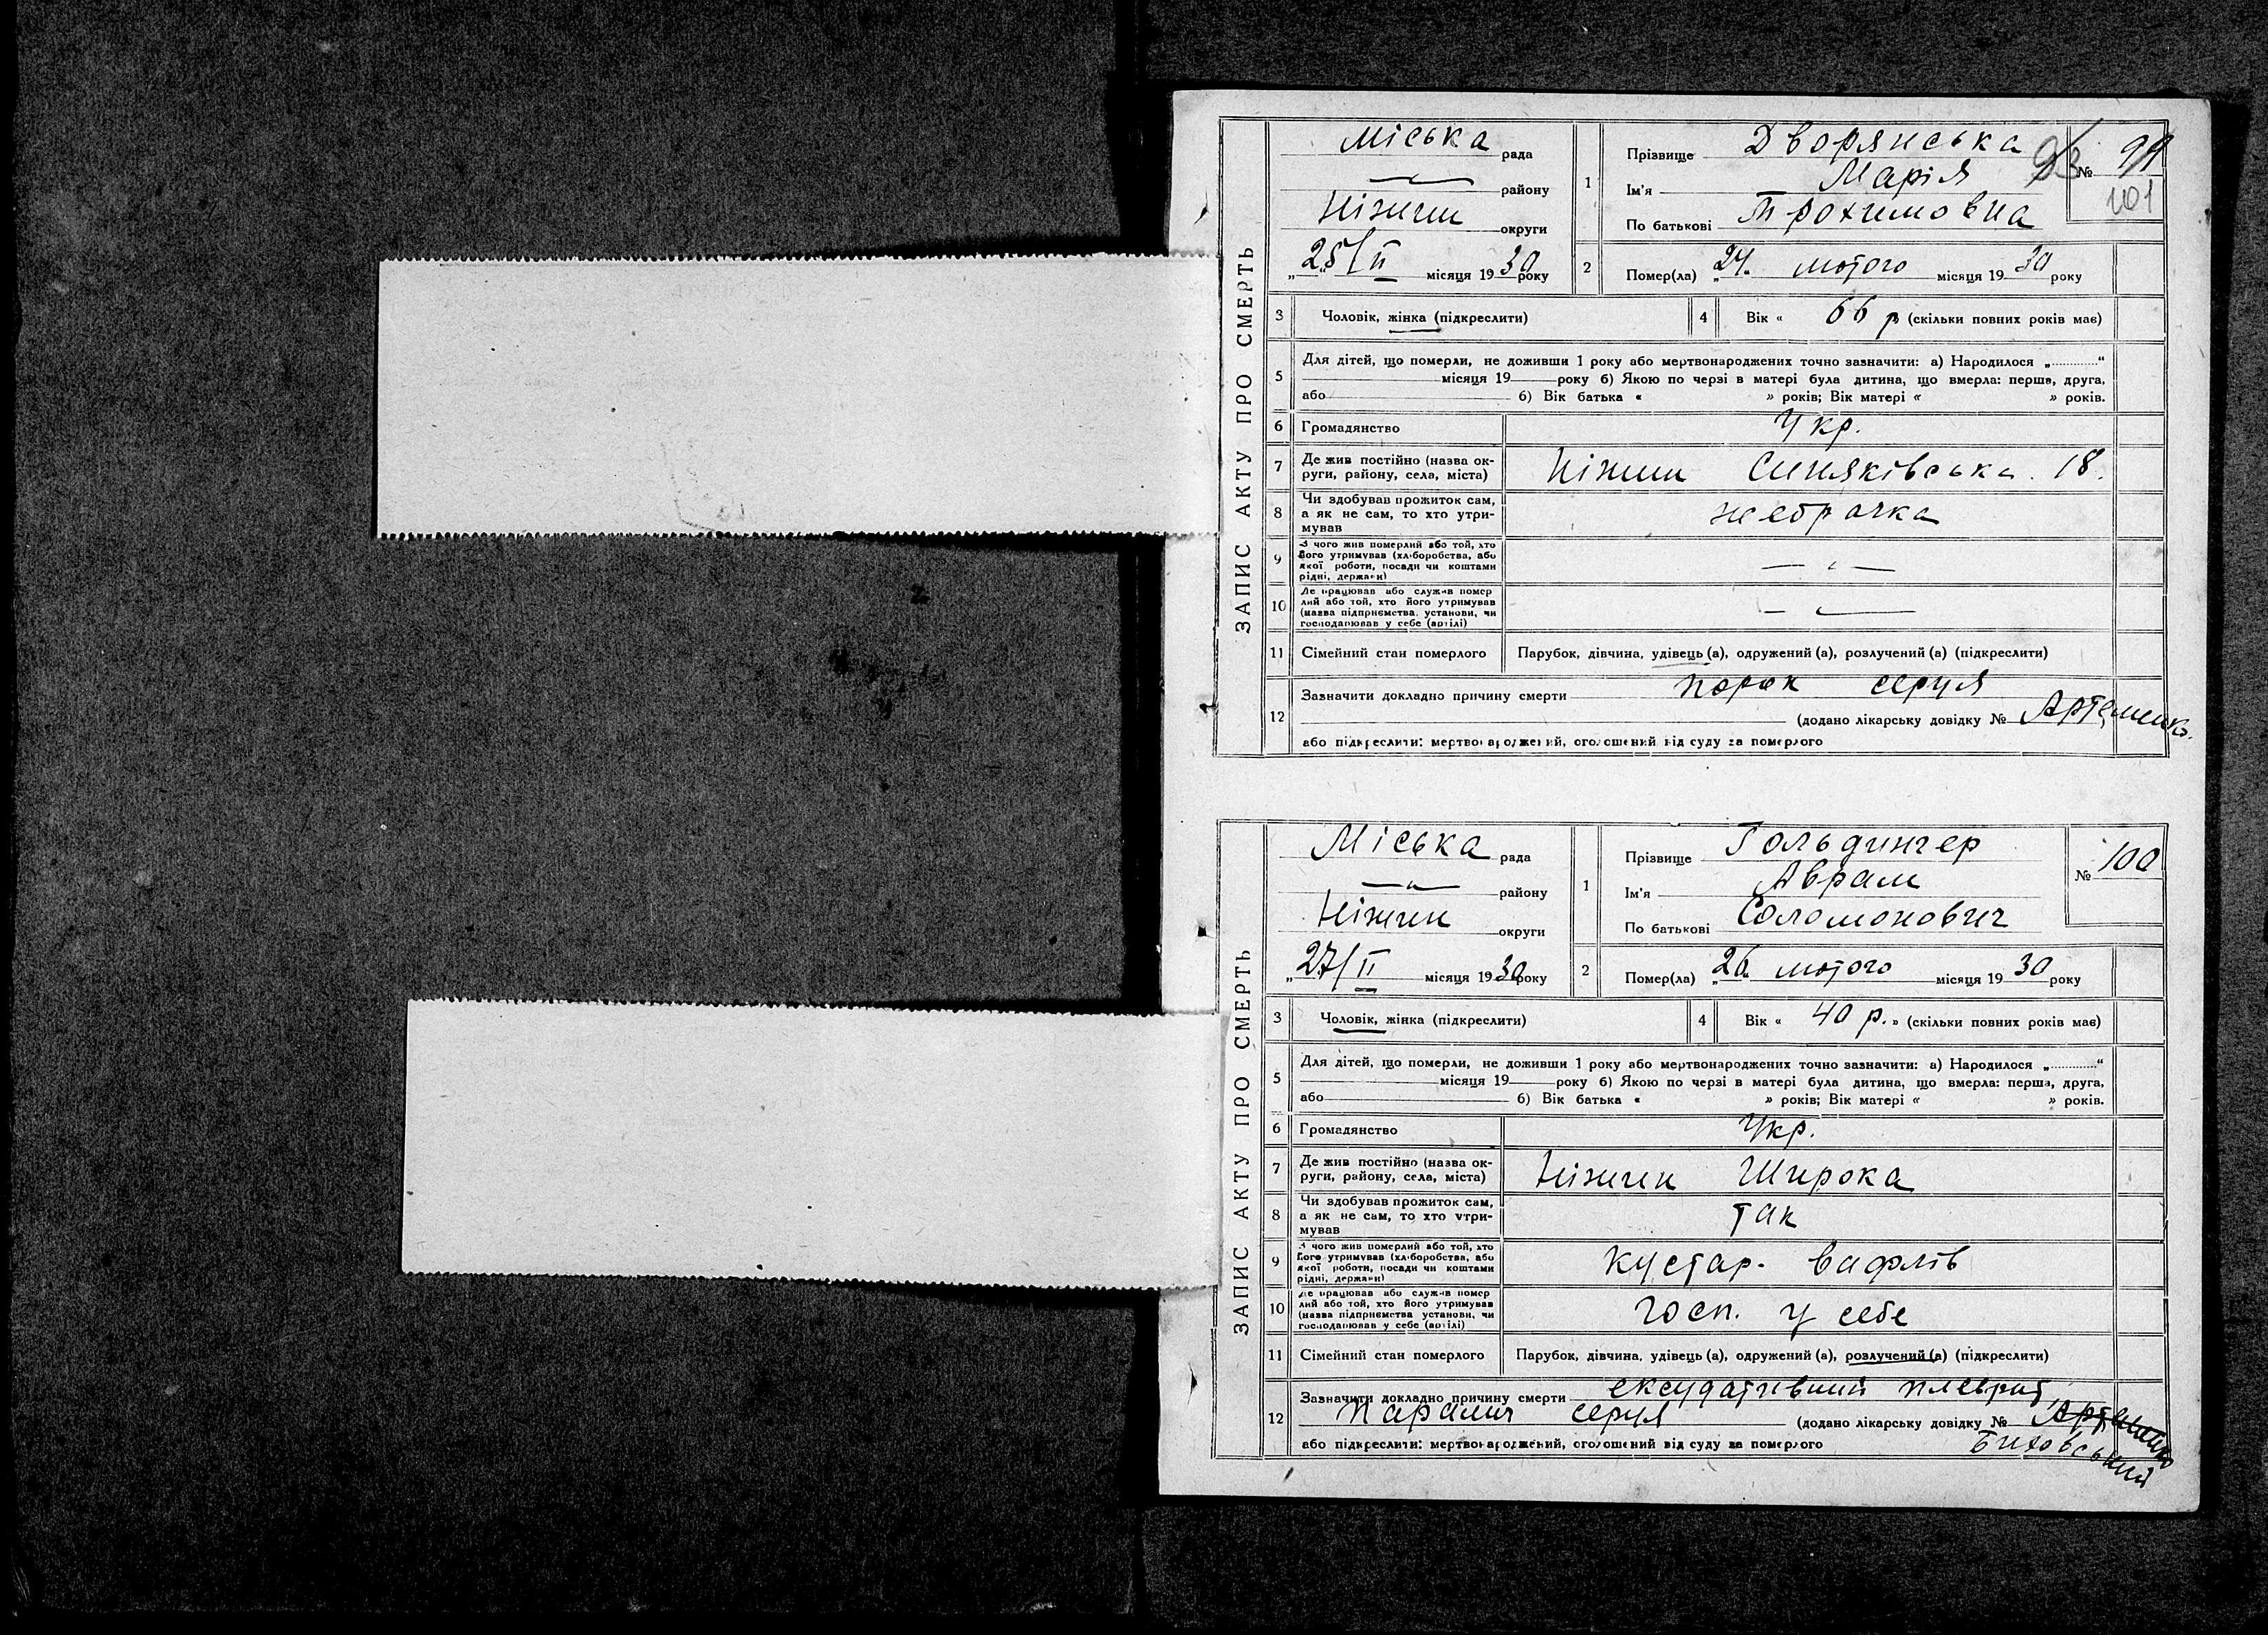 ЗАПИС АКТУ ПРО СМЕРТЬ
Міська рада
району
Ніжин округи
„25/II місяця 1930 року
1
Прізвище Дворянська
Ім'я Марія
По батькові Трохимовна
93
№ 99
101
2 Помер(ла) „24“ лютого місяця 1930 року
3 Чоловік, жінка (підкреслити)
4 Вік « 66 р. » (скільки повних років має)
5 Для дітей, що померли, не доживши 1 року або мертвонароджених точно зазначити: а) Народилося „............“
місяця 19 року б) Якою по черзі в матері була дитина, що вмерла: перша, друга,
або б) Вік батька « » років; Вік матері « » років.
6 Громадянство Укр.
7 Де жив постійно (назва ок-
руги, району, села, міста) Ніжин Синяківська 18.
8 Чи здобував прожиток сам,
а як не сам, то хто утри-
мував жебрачка
9 З чого жив померлий або той, хто
його утримував (хліборобства, або
якої роботи, посади чи коштами
рідні, держави) — " —
10 Де працював або служив помер
лий або той, хто його утримував
(назва підприємства, установи, чи
господарював у себе (артілі) — " —
11 Сімейний стан померлого Парубок, дівчина, удівець (а), одружений (а), розлучений (а) (підкреслити)
12 Зазначити докладно причину смерти порок серця
(додано лікарську довідку № Артеменко
або підкреслити: мертвонароджений, оголошений від суду за померлого
ЗАПИС АКТУ ПРО СМЕРТЬ
Міська рада
— " — району
Ніжин округи
„27/II місяця 1930 року
1
Прізвище Гольдингер
Ім'я Аврам
По батькові Соломонович
№ 100
2 Помер(ла) „26“ лютого місяця 1930 року
3 Чоловік, жінка (підкреслити)
4 Вік « 40 р. » (скільки повних років має)
5 Для дітей, що померли, не доживши 1 року або мертвонароджених точно зазначити: а) Народилося „............“
місяця 19 року б) Якою по черзі в матері була дитина, що вмерла: перша, друга,
або б) Вік батька « » років; Вік матері « » років.
6 Громадянство Укр.
7 Де жив постійно (назва ок-
руги, району, села, міста) Ніжин Широка
8 Чи здобував прожиток сам,
а як не сам, то хто утри-
мував так
9 З чого жив померлий або той, хто
його утримував (хліборобства, або
якої роботи, посади чи коштами
рідні, держави) кустар. вафлів
10 Де працював або служив помер
лий або той, хто його утримував
(назва підприємства установи, чи
господарював у себе (артілі) госп. у себе
11 Сімейний стан померлого Парубок, дівчина, удівець (а), одружений (а), розлучений (а) (підкреслити)
12 Зазначити докладно причину смерти ексудативний плеврит,
Параліч серця (додано лікарську довідку № Артеменко
або підкреслити: мертвонароджений, оголошений від суду за померлого Биховський